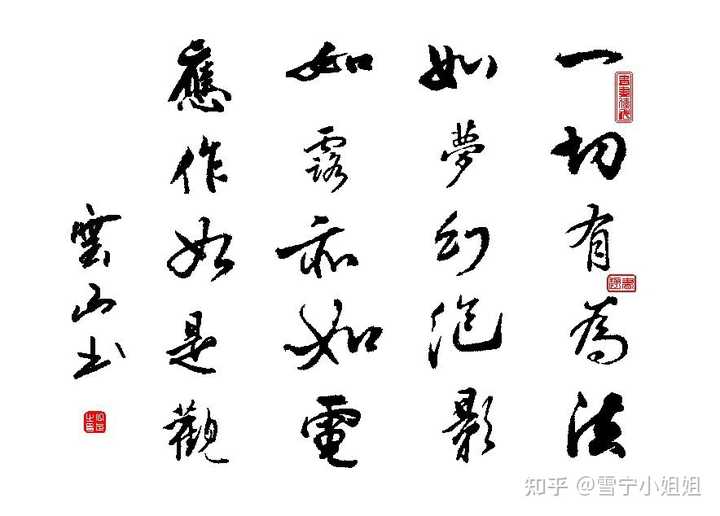 一切有為法
如夢幻泡影
如露亦如電
應作如是觀
雲山书
知乎 @雪宁小姐姐